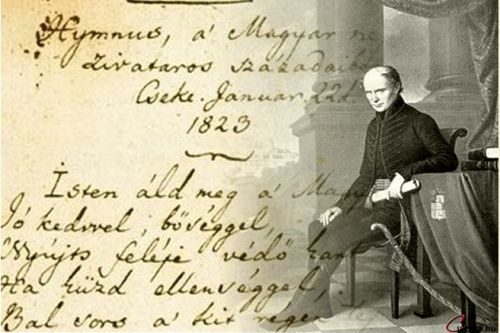 Hymnus, a' Magyar ne
zivataros századaibó
Cseke. Januar. 22d.
1823
Isten áld meg a' Ma
Jó kedvvel, bőséggel,
Nyújts feléje védő kart
Ha küzd ellenséggel,
Bal sors a' kit régen